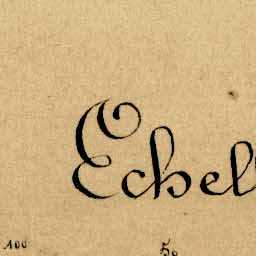 Echell
100 50